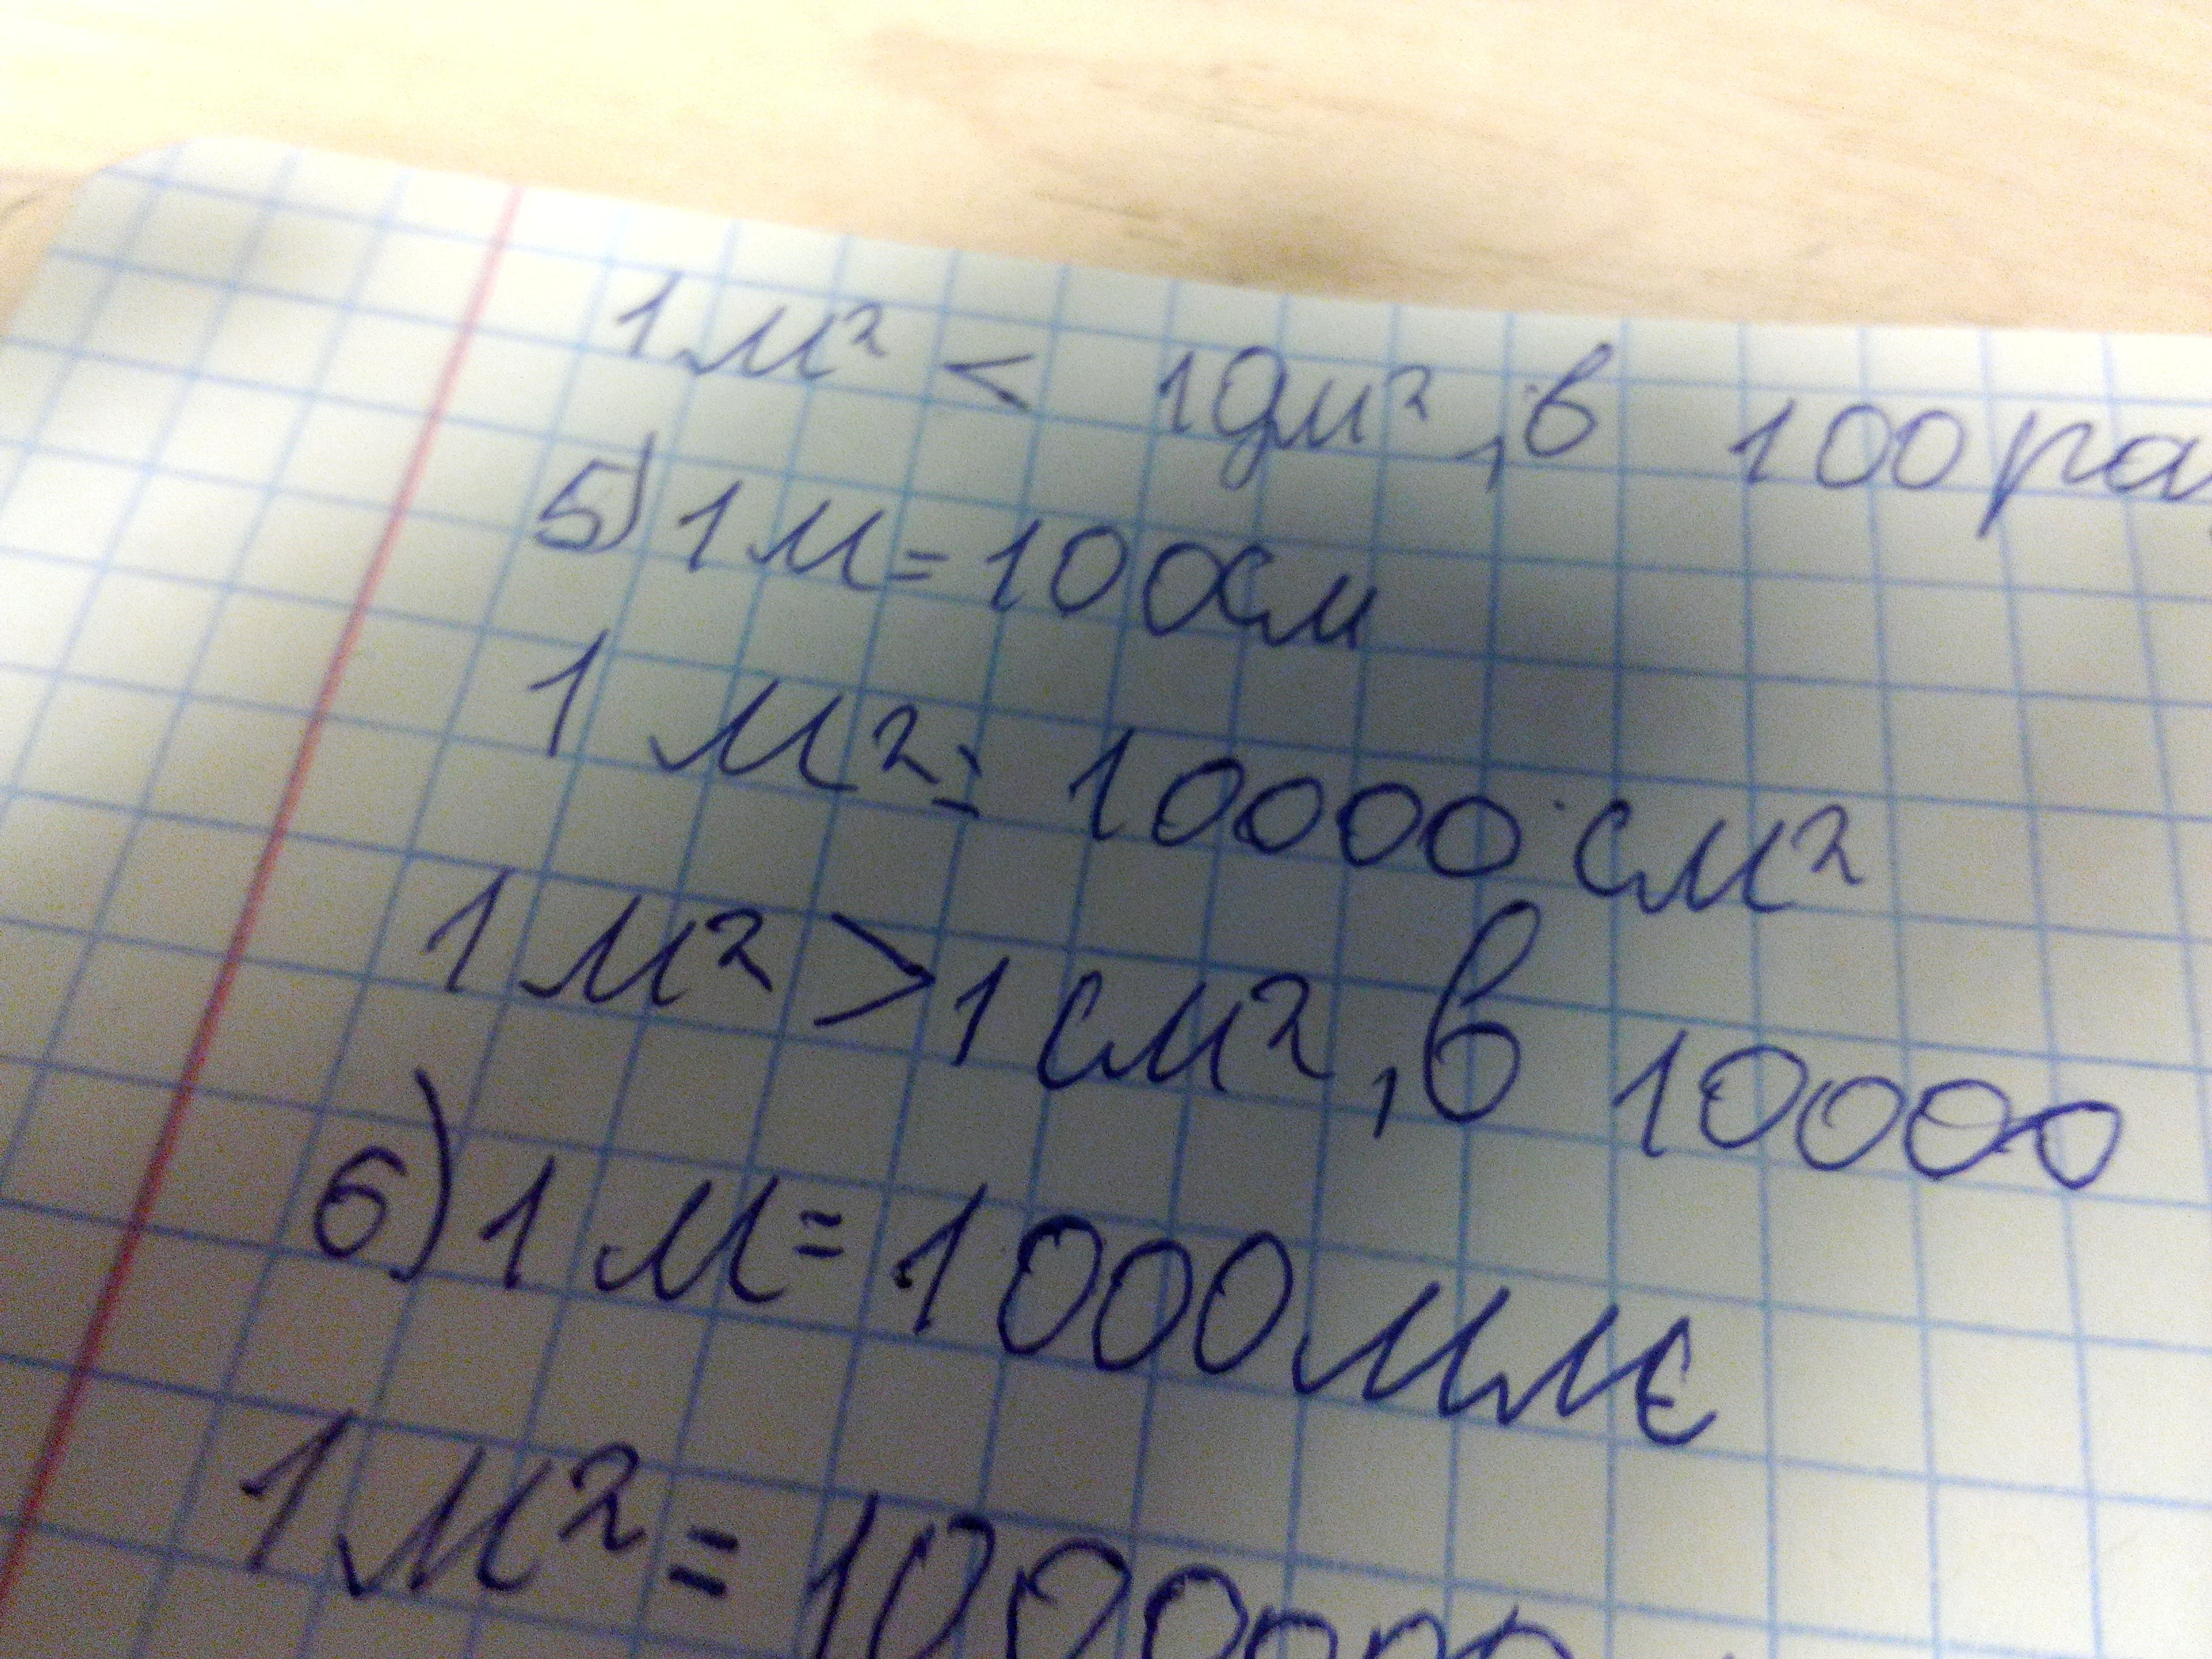 1 м² < 1 дм², в 100 ра
5) 1 м = 100 см
1 м² = 10000 см²
1 м² > 1 см², в 10000
6) 1 м = 1000 мм
1 м² =